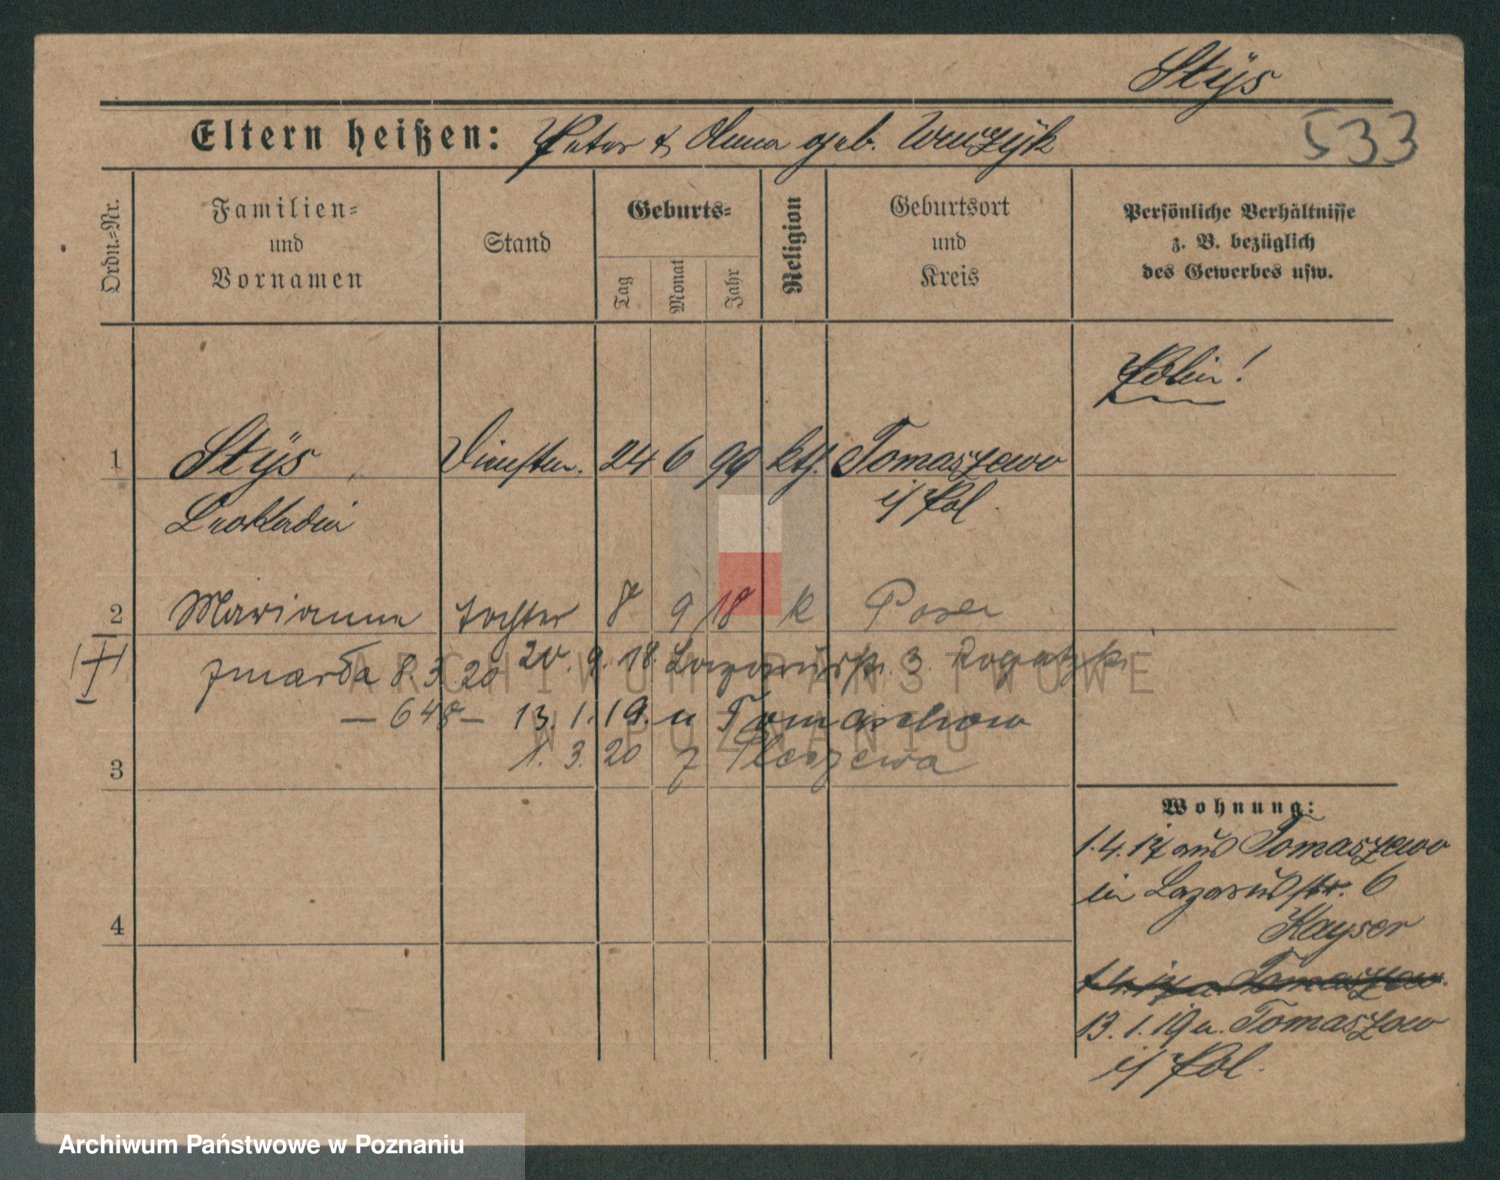 Stÿs
Eltern heißen: Peter & Anna geb. Wuzÿk
533
Ordn.=Nr.
Familien=
und
Vornamen
Stand
Geburts=
Tag
Monat
Jahr
Religion
Geburtsort
und
Kreis
Persönliche Verhältnisse
z. B. bezüglich
des Gewerbes usw.
Polin!
1 Stÿs Dienstm. 24 6 99 kth. Tomaszewo
Leokadia i/ Pol.
2 Marianna tochter 8 9 18 k Posen
zmarła 8.3 20 20. 9. 18. Lazarusstr. 3.
— 648 — 13. 1. 19. n Tomaschow
1. 3. 20 z Pleszewa
3
4
Wohnung:
1.4.17 aus Tomaszewo
in Lazarusstr. 6
Kayser
13. 1. 19 n. Tomaszow
i/ Pol.
ARCHIWUM PAŃSTWOWE
W POZNANIU
Archiwum Państwowe w Poznaniu